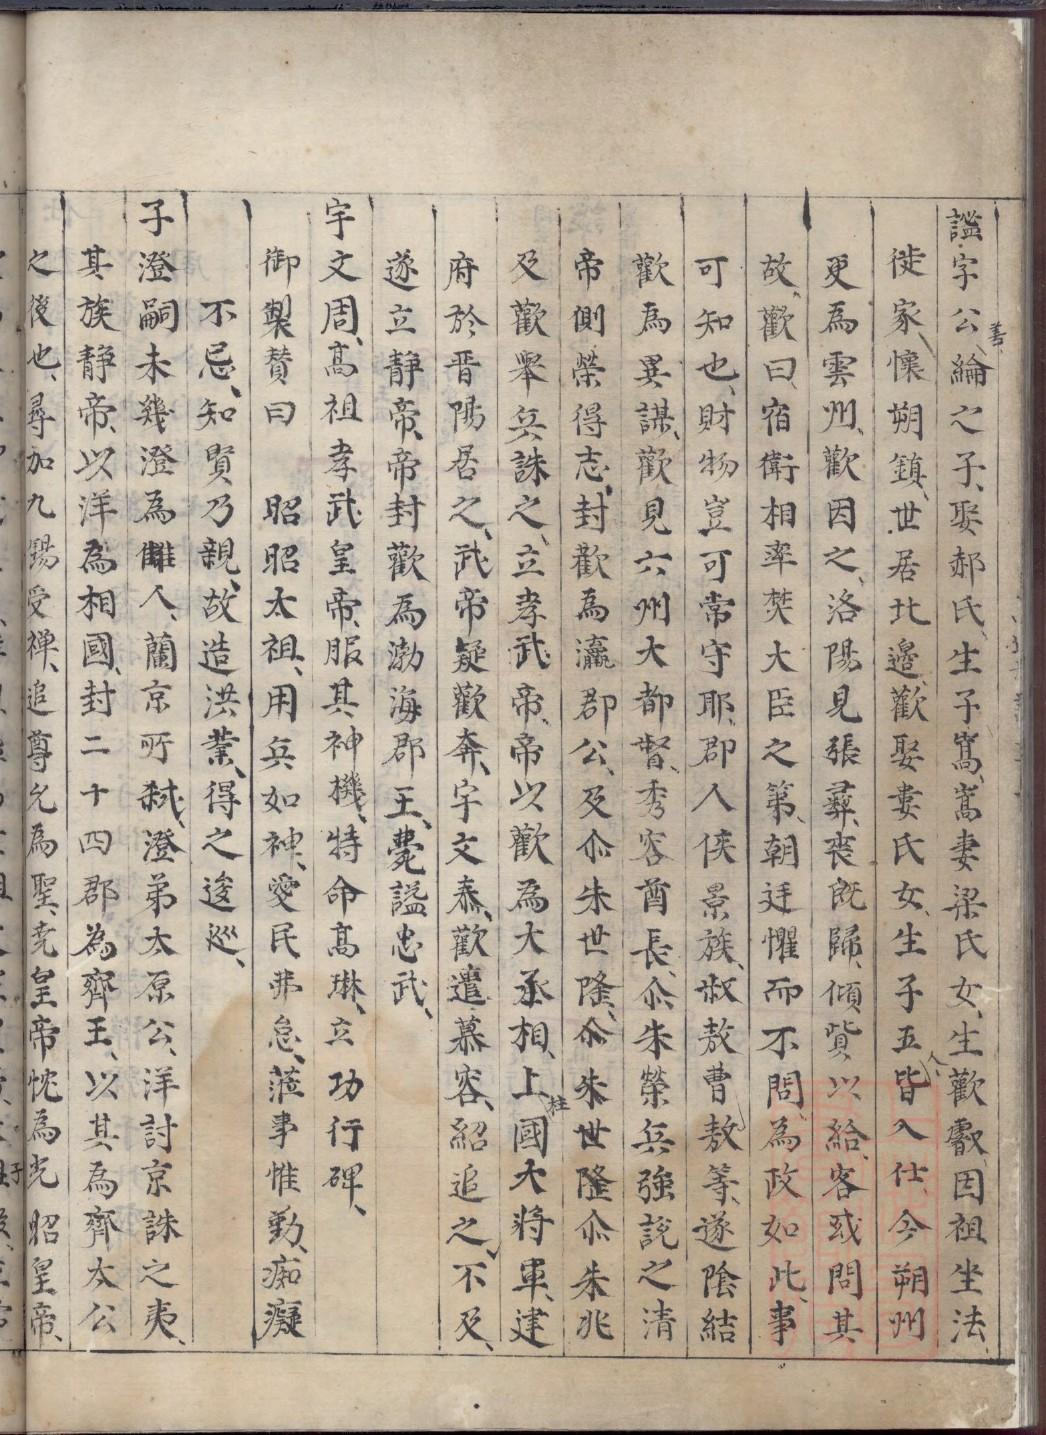 謐字公綸之子娶郝氏生子嵩嵩妻梁氏女生歡歡因祖坐法
善
徙家懷朔鎮世居北邊歡娶婁氏女生子五皆入仕今朔州
更為雲州歡因之洛陽見張彞喪既歸傾貲以給客或問其
故歡曰宿衛相率焚大臣之第朝廷懼而不問為政如此事
可知也財物豈可常守耶郡人侯景族叔敖曹敖等遂陰結
歡為異謀歡見六州大都督秀容酋長尒朱榮兵強說之清
帝側榮得志封歡為瀛郡公及尒朱世隆尒朱世隆尒朱兆
及歡舉兵誅之立孝武帝帝以歡為大丞相上柱國大將軍建
府於晋陽居之武帝疑歡奔宇文泰歡遣慕容紹追之不及
遂立靜帝帝封歡為渤海郡王薨謚忠武
宇文周高祖孝武皇帝服其神機特命高琳立功行碑
御製賛曰　昭昭太祖用兵如神愛民弗怠蒞事惟勤痴癡
不忌知賢乃親故造洪業得之逡巡
子澄嗣未幾澄為讎人蘭京所弒澄弟太原公洋討京誅之夷
其族靜帝以洋為相國封二十四郡為齊王以其為齊太公
之後也尋加九錫受禅追尊允為聖堯皇帝忱為光昭皇帝